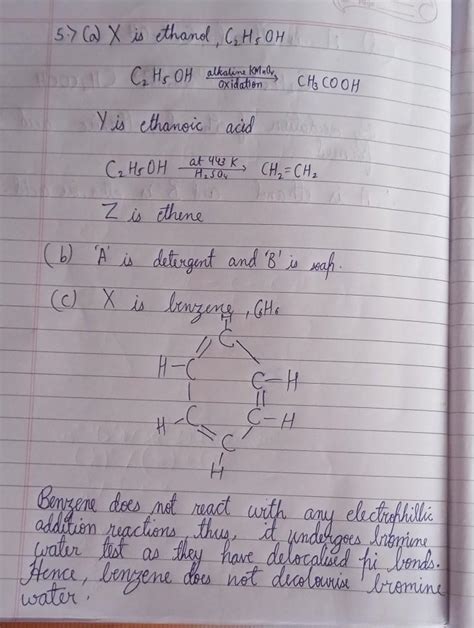 5.> (a) X is ethanol, C2H5OH
C2H5OH alkaline KMnO4 oxidation → CH3COOH
Y is ethanoic acid
C2H5OH at 443 K H2SO4 → CH2=CH2
Z is ethene
(b) 'A' is detergent and 'B' is soap.
(c) X is benzene, C6H6
H
C
H-C
C-H
H-C
C-H
C
H
Benzene does not react with any electrophillic
addition reactions thus, it undergoes bromine
water test as they have delocalised pi bonds.
Hence, benzene does not decolourise bromine
water.